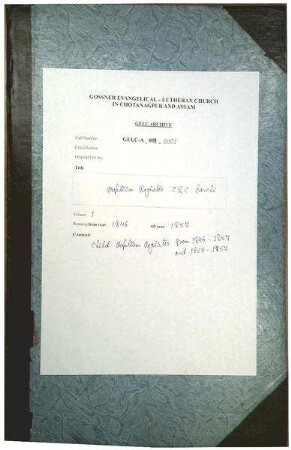 GOSSNER EVANGELICAL - LUTHERAN CHURCH
IN CHOTANAGPUR AND ASSAM
GELC ARCHIVE
Call Number GELC-A_
Classification
Original File No.
Title
Baptism Register Ranchi
Volume 1
Running from year 1846 till year 1857
Content
Child Baptism Register from 1846 - 1857
and